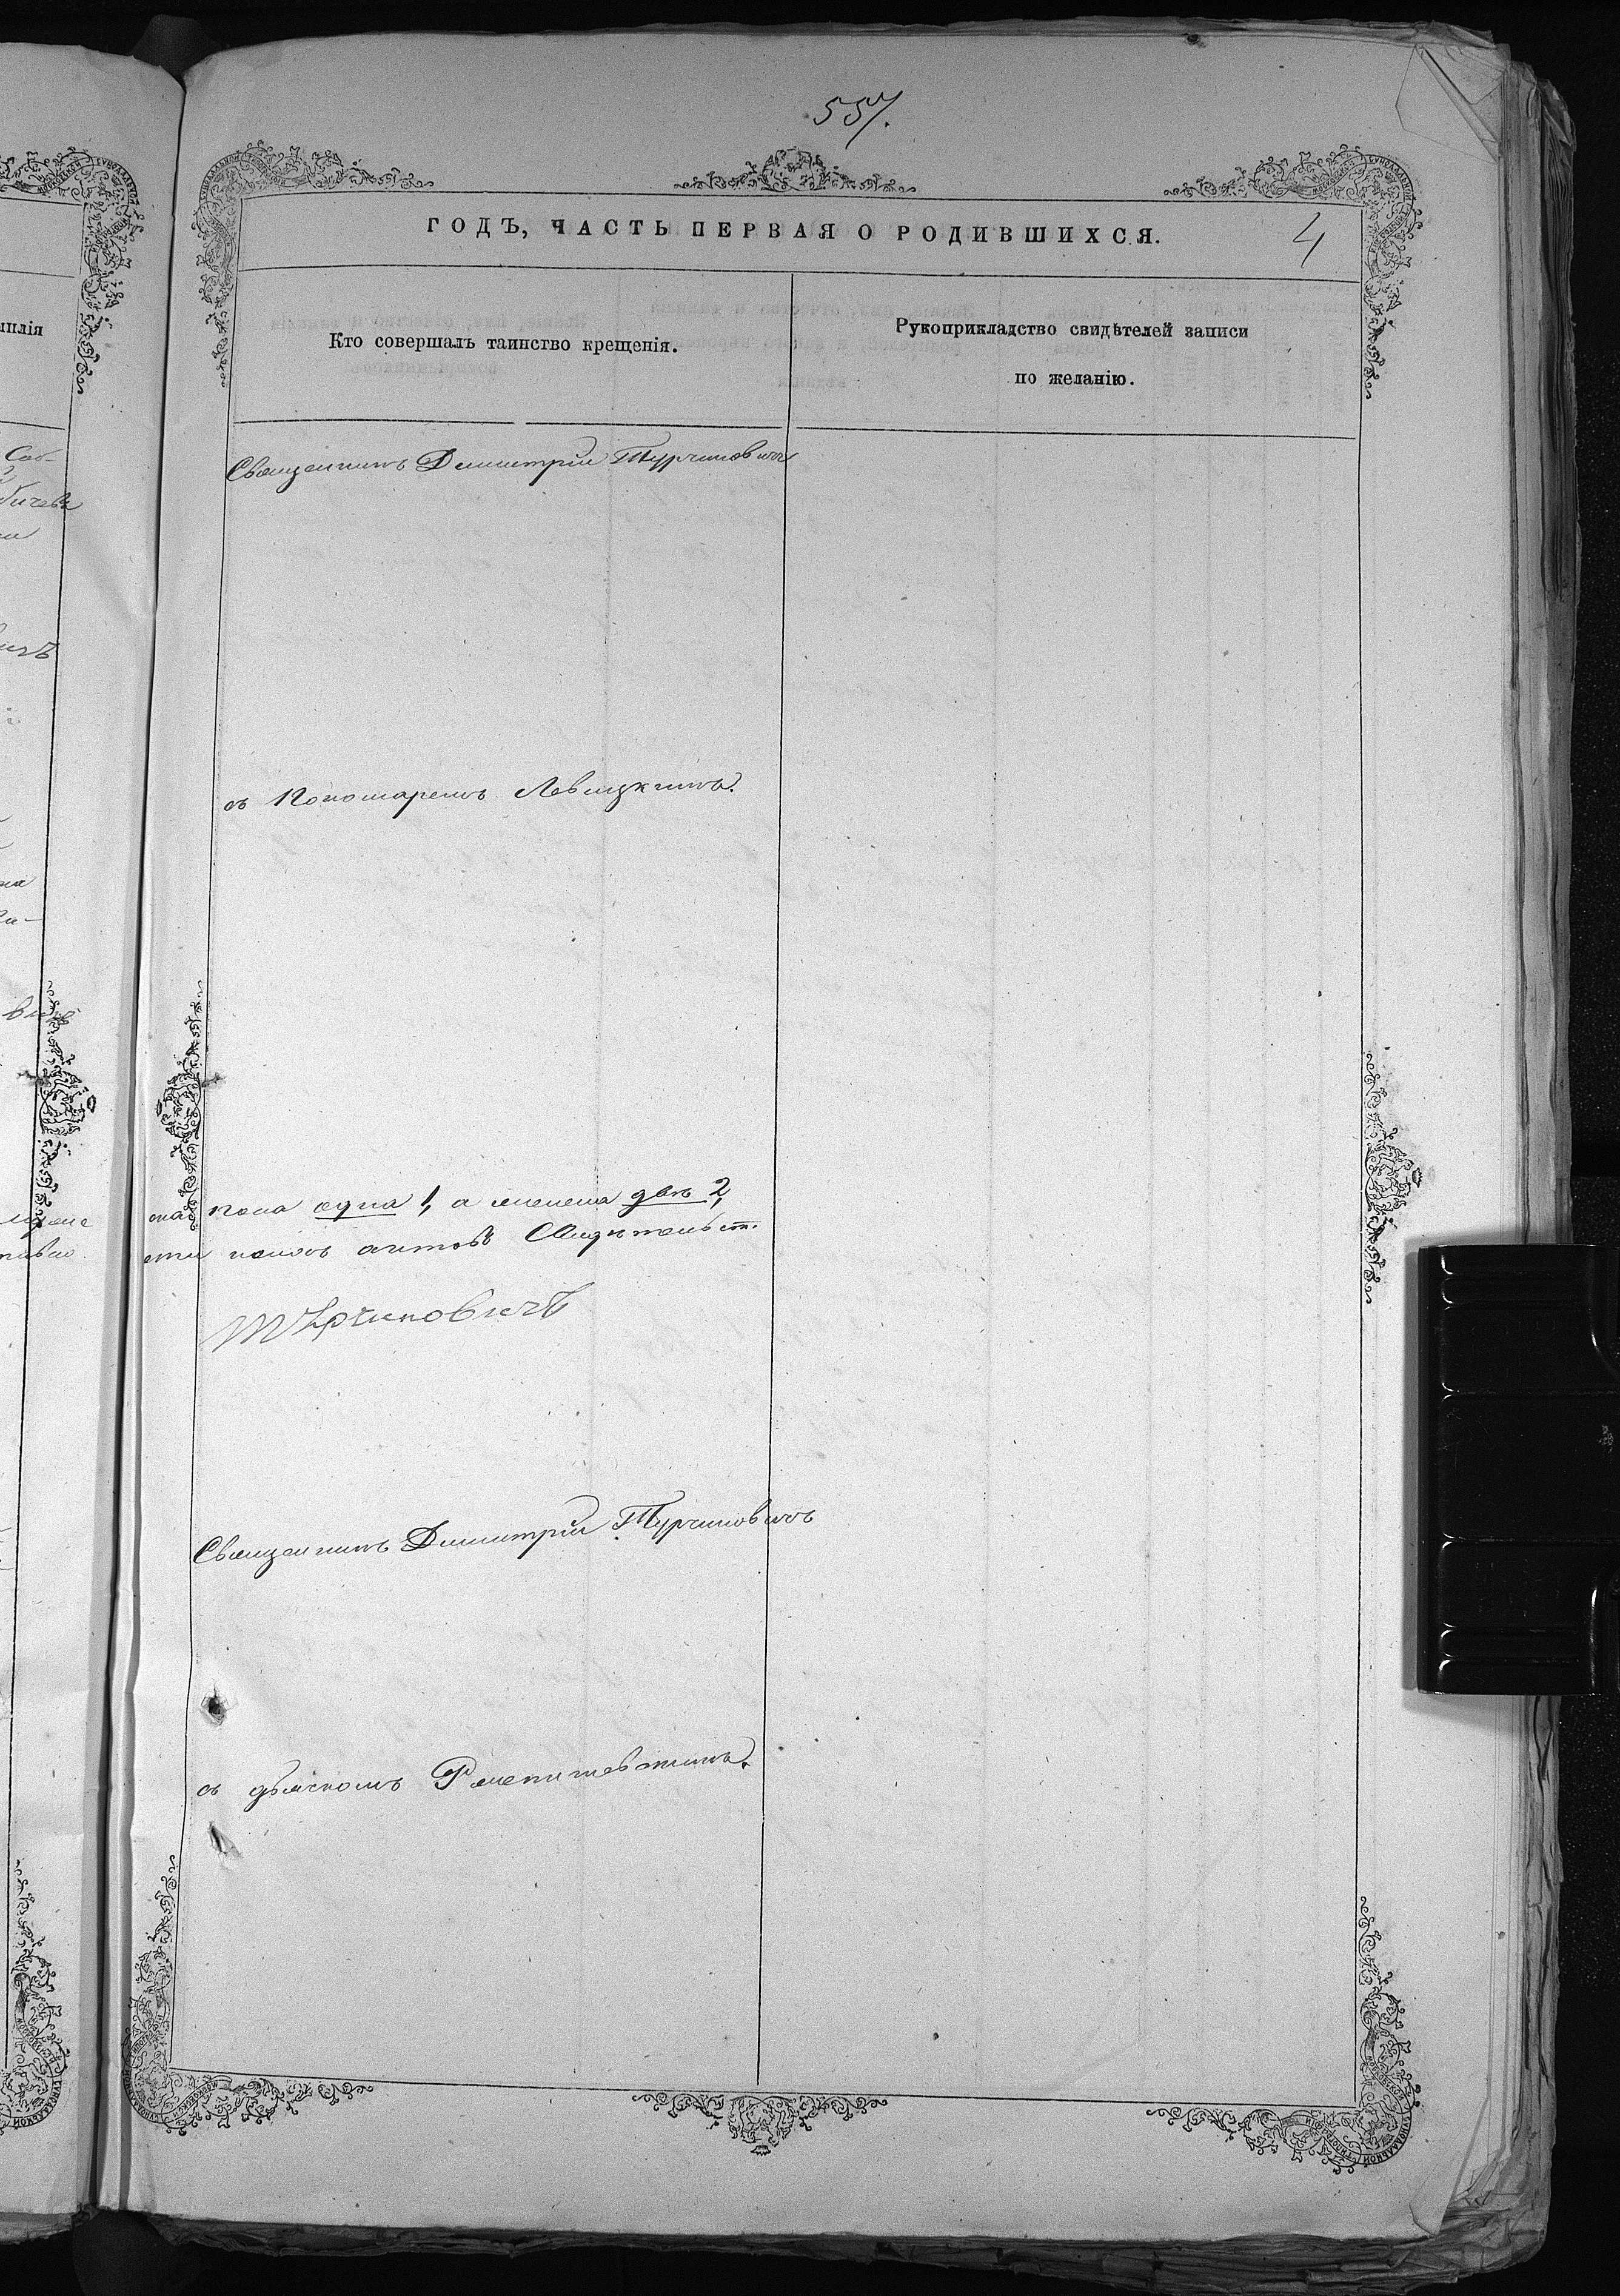 557.
ГОДЪ, ЧАСТЬ ПЕРВАЯ О РОДИВШИХСЯ.
4
Кто совершалъ таинство крещенія.
Рукоприкладство свидѣтелей записи
по желанію.
Священникъ Димитрій Турчиновичъ
съ Пономаремъ Левицкимъ.
пола одна 1, а именно двѣ 2,
актовъ Свидѣтельст.
Турчиновичъ
Священникъ Димитрій Турчиновичъ
съ дьячкомъ